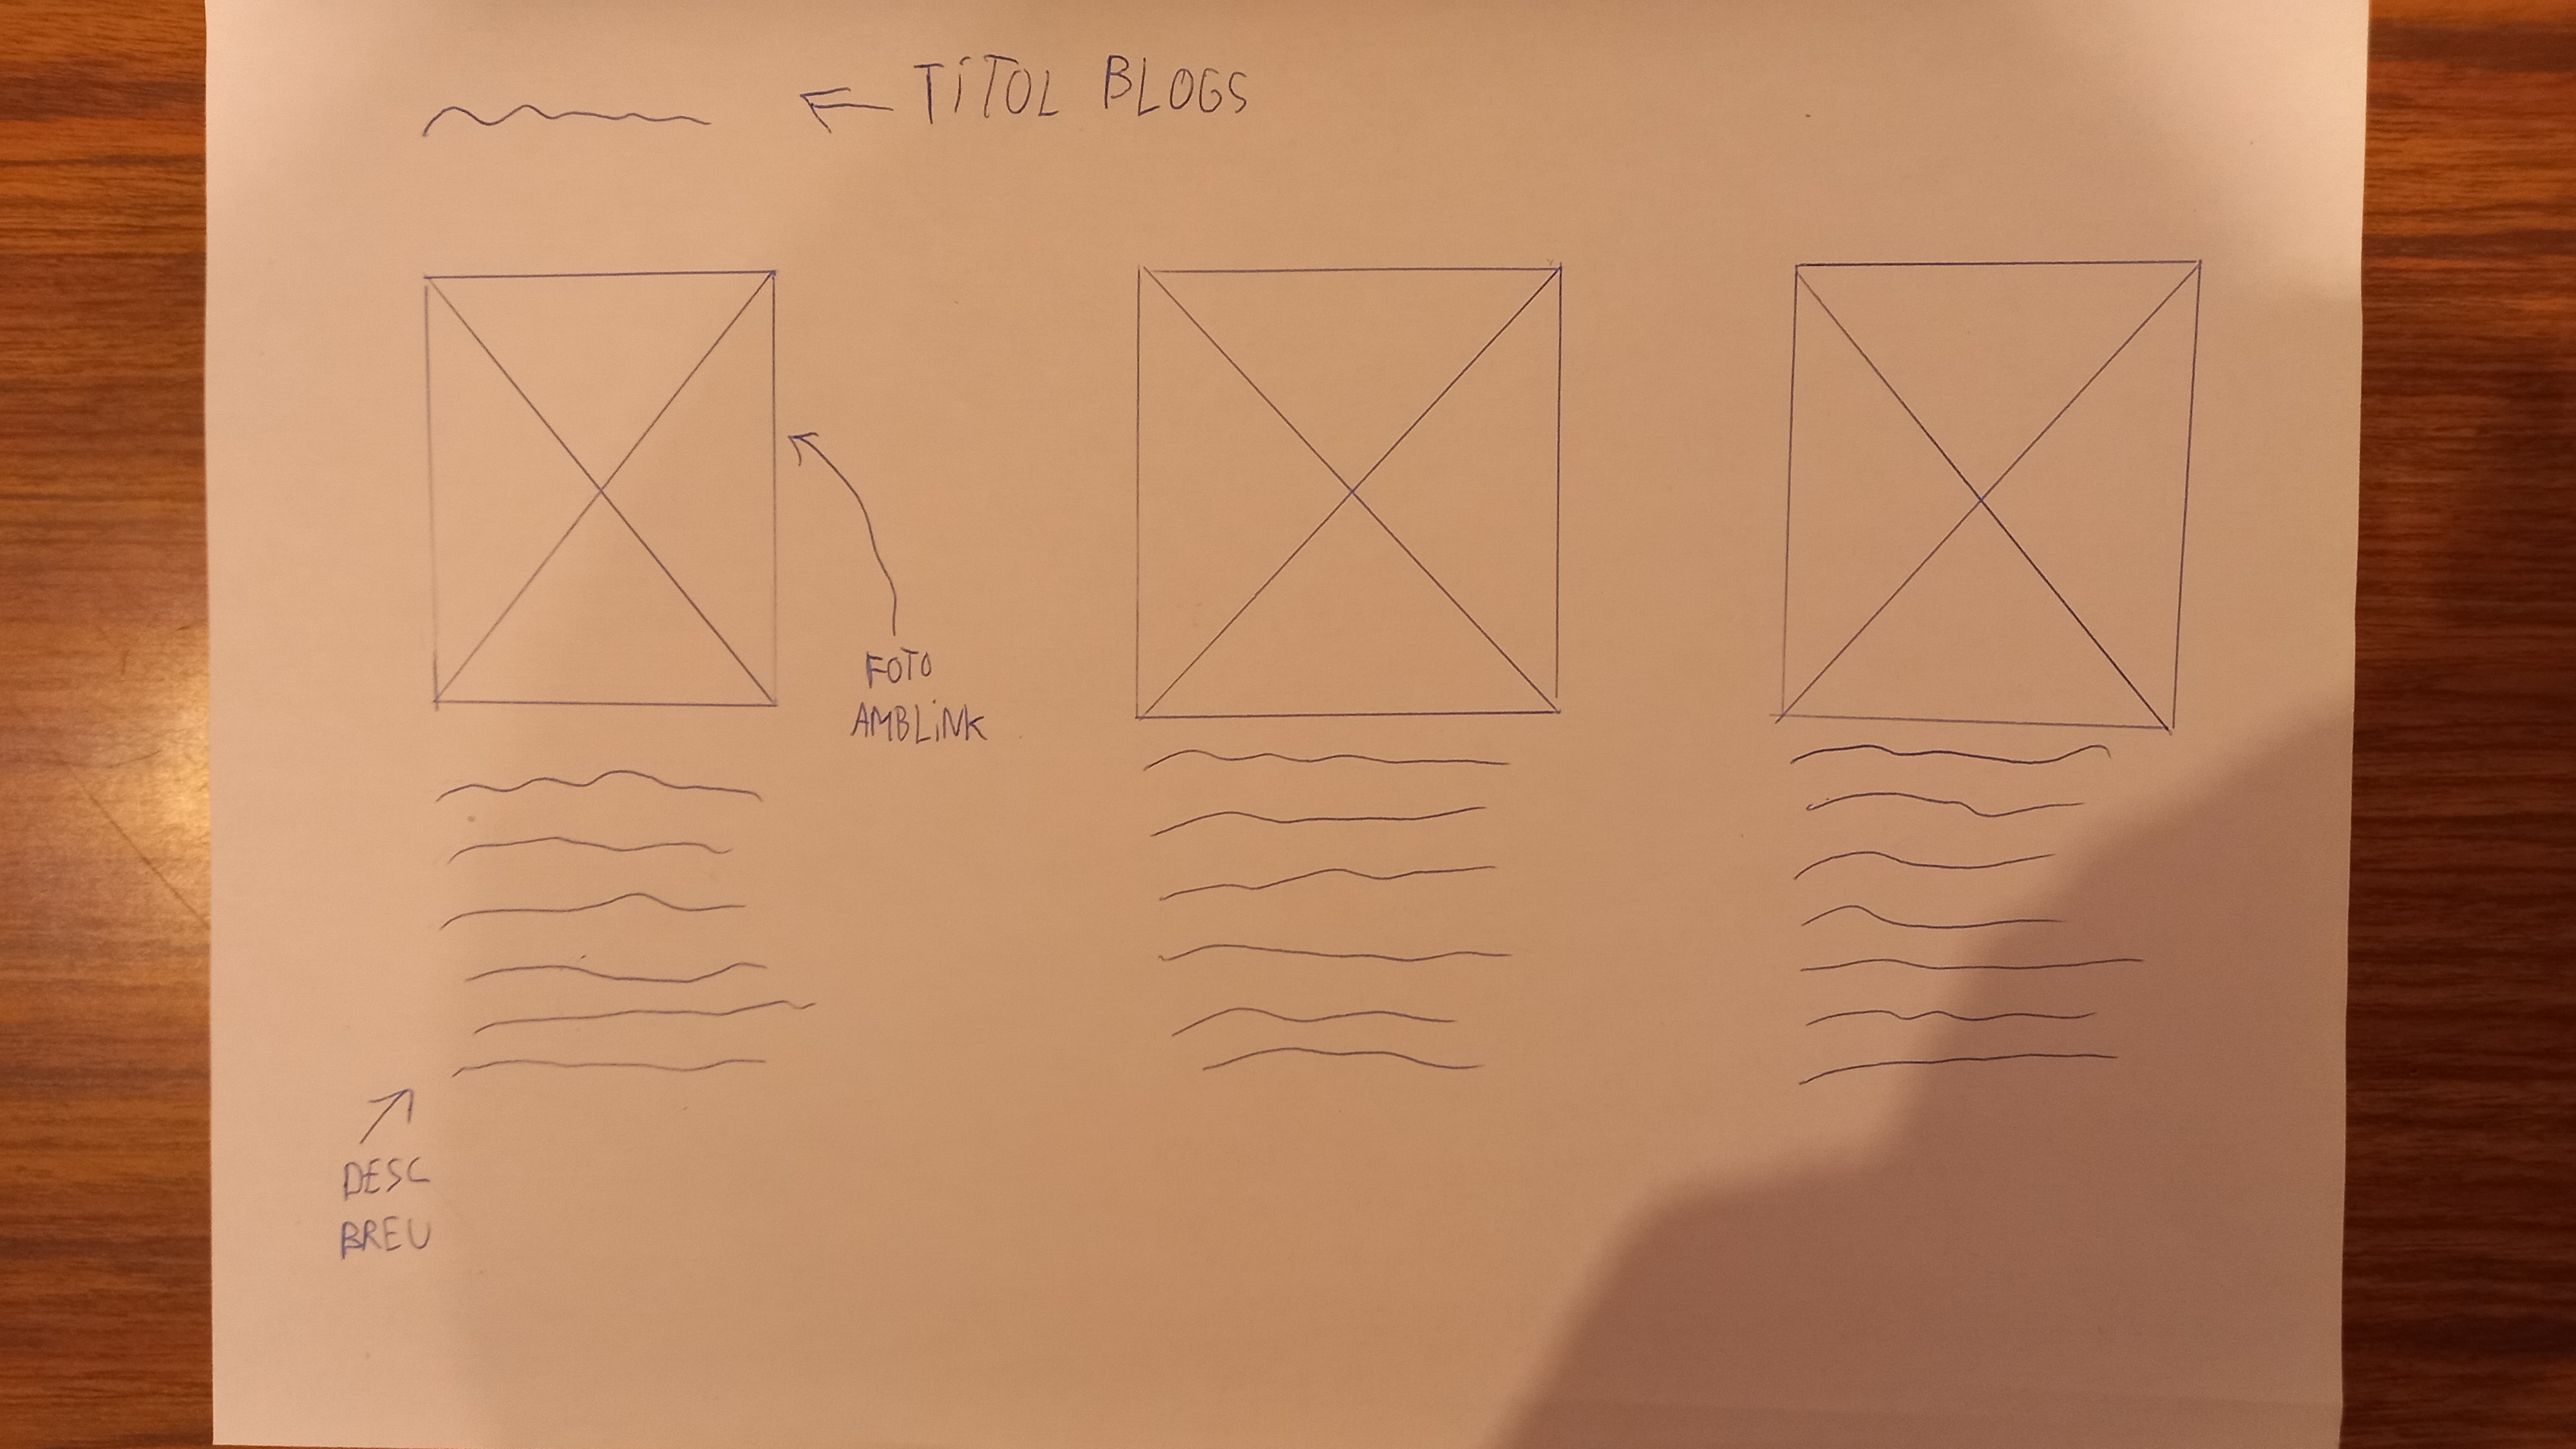 TiTOL BLOGS
FOTO
AMB LiNK
DESC
BREU